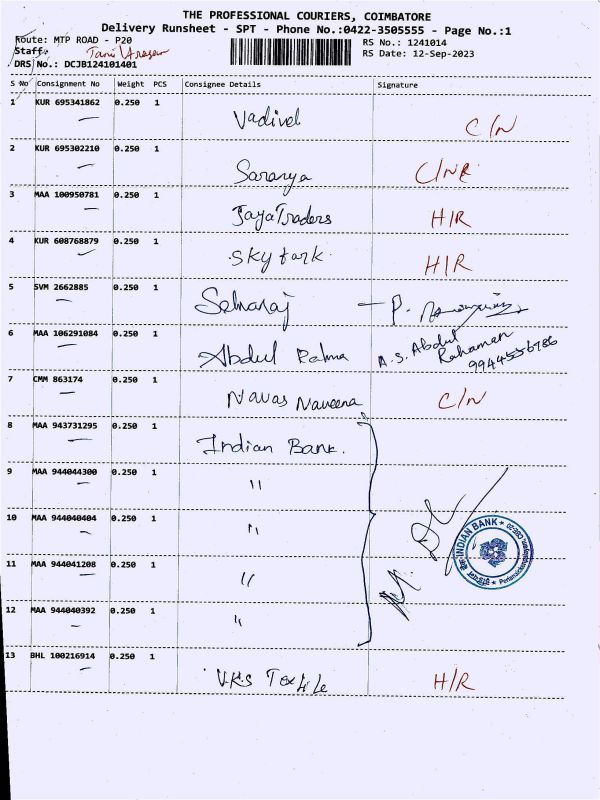 THE PROFESSIONAL COURIERS, COIMBATORE
Delivery Runsheet - SPT - Phone No.:0422-3505555 - Page No.:1
Route: MTP ROAD - P20
RS No.: 1241014
Staff:
RS Date: 12-Sep-2023
DRS No.: DCJB124101401
S No Consignment No Weight PCS Consignee Details Signature
1 KUR 695341862 0.250 1 Vadivel C/N
2 KUR 695302210 0.250 1 Saranya C/NR
3 MAA 100950781 0.250 1 JayaTraders H/R
4 KUR 608768879 0.250 1 Sky tark H/R
5 SVM 2662885 0.250 1 Selvaraj - P.
6 MAA 106291084 0.250 1 Abdul Rahma A.S. Abdul Rahaman
9944556786
7 CMM 863174 0.250 1 Navas Naveena C/N
8 MAA 943731295 0.250 1 Indian Bank.
9 MAA 944044300 0.250 1 "
10 MAA 944040404 0.250 1 "
11 MAA 944041208 0.250 1 "
INDIAN BANK
12 MAA 944040392 0.250 1 "
13 BHL 100216914 0.250 1 V.K.S Textile H/R